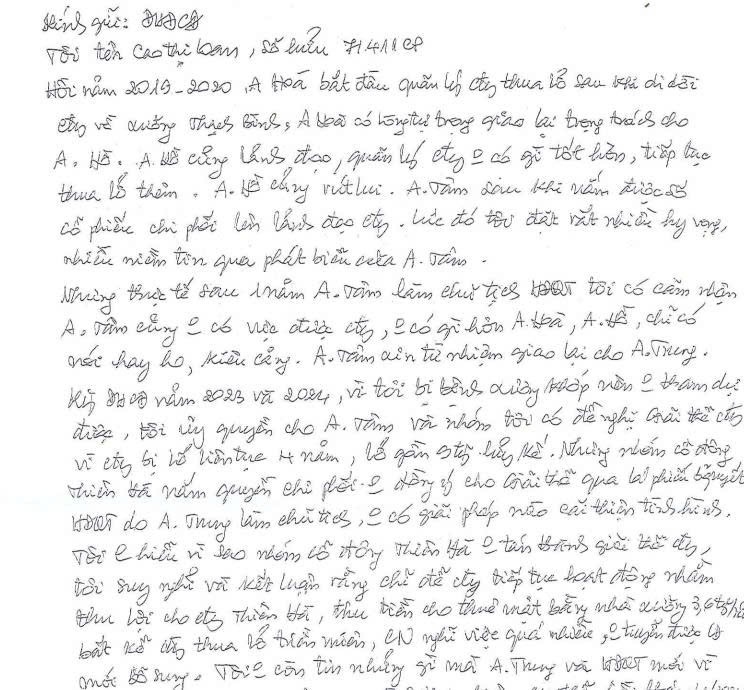 Kính gửi: ĐHĐCĐ
Tôi tên Cao Thị Loan, sở hữu 7141 CP
Hồi năm 2019-2020, A Hoà bắt đầu quản lý cty thua lỗ sau khi di dời
cty về xưởng Thạch Bình, A Hoà có lòng tự trọng giao lại trọng trách cho
A. Hồ. A. Hồ cũng lãnh đạo, quản lý cty 0 có gì tốt hơn, tiếp tục
thua lỗ thêm. A. Hồ cũng rút lui. A. Tâm sau khi nắm được số
cổ phiếu chi phối lên lãnh đạo cty. Lúc đó tôi đặt rất nhiều hy vọng,
nhiều niềm tin qua phát biểu của A. Tâm.
Nhưng thực tế sau 1 năm A. Tâm làm chủ tịch HĐQT tôi có cảm nhận
A. Tâm cũng 0 có vực được cty, 0 có gì hơn A. Hoà, A. Hồ, chỉ có
nói hay ho, A. Tâm xin từ nhiệm giao lại cho A. Trung.
Kỳ ĐHCĐ năm 2023 và 2024, vì tôi bị bệnh xương khớp nên 0 tham dự
được, tôi ủy quyền cho A. Tâm và nhóm tôi có đề nghị Giải thể cty
vì cty bị lỗ liên tục 4 năm, lỗ gần 9 tỷ lũy kế. Nhưng nhóm cổ đông
Thiên Hà nắm quyền chi phối 0 đồng ý cho Giải thể qua lá phiếu biểu quyết
HĐQT do A. Trung làm chủ tịch, 0 có giải pháp nào cải thiện tình hình.
Tôi 0 hiểu vì sao nhóm cổ đông Thiên Hà 0 tán thành giải thể cty,
tôi suy nghĩ và kết luận rằng chỉ để cty tiếp tục hoạt động nhằm
thu lợi cho cty Thiên Hà, thu tiền cho thuê mặt bằng nhà xưởng 3,6 tỷ/
bất kể cty thua lỗ triền miên, CN nghỉ việc quá nhiều, 0 tuyển được
mới bổ sung. Tôi 0 còn tin những gì mà A. Trung và HĐQT mới vì